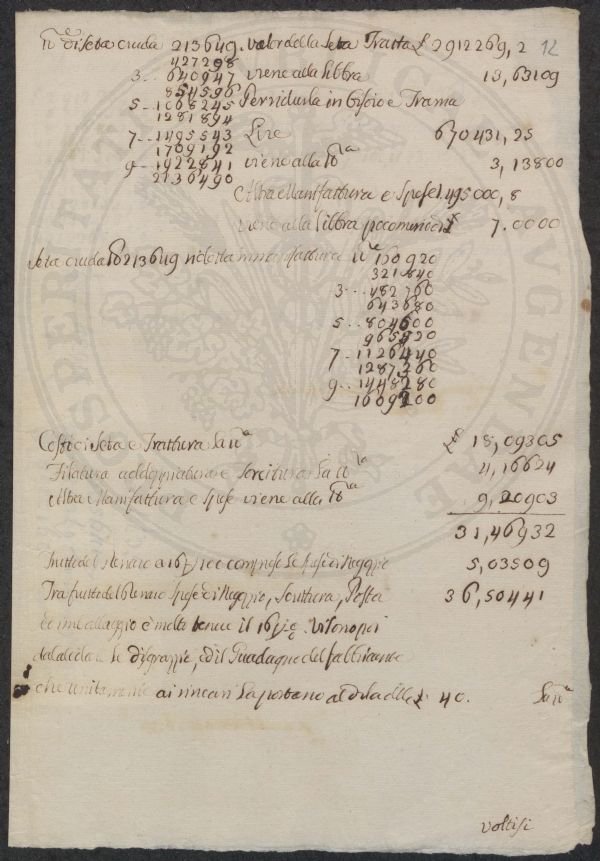 di seta cruda 213649. valor della Seta Tratta £ 2912269, 2 12
427298
3 .. 640947 viene alla libbra 13,63109
854596
5 .. 1068245 Per ridurla in Orsoio e Trama
1281894
7 .. 1495543 Lire 670431, 25
1709192
9 .. 1922841 viene alla lb.ª 3, 13800
2136490
Altra Manifattura e Spese £ 1.495000, 8
viene alla libbra poco meno di £ 7.0000
Seta cruda lb 213649 ridotta in manifattura 160920
321840
3 .. 482760
643680
5 .. 804600
965520
7 .. 1126440
1287360
9 .. 1448280
1609200
Costo di Seta e Trattura la lb.ª £ 18,09305
Filatura addoppiatura e Torcitura la lb.ª 4,16624
Altra Manifattura e Spese viene alla lb.ª 9,20903
31,46932
Frutto del Denaro a 16 p 100 comprese le spese di Negozio 5,03509
Tra frutto del Denaro Spese di Negozio, Scrittura, Posta 36,50441
ed imballaggio è molto tenue il 16 Vi sono poi
da calcolare le disgrazie, ed il Guadagno del fabbricante
che unitamente ai rincari la portano al di là delle £ 40. la lb.ª
voltisi
PROSPERITATI PUBLICAE AUGENDAE